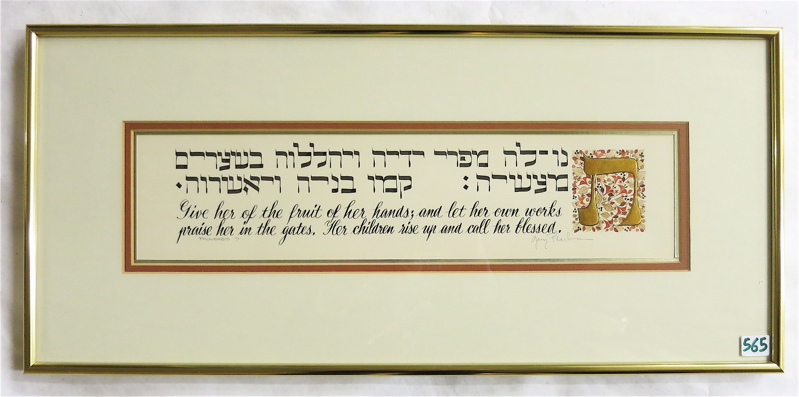 תנו־לה מפרי ידיה ויהללוה בשערים
מעשיה: קמו בניה ויאשרוה.
Give her of the fruit of her hands; and let her own works
praise her in the gates. Her children rise up and call her blessed.
565